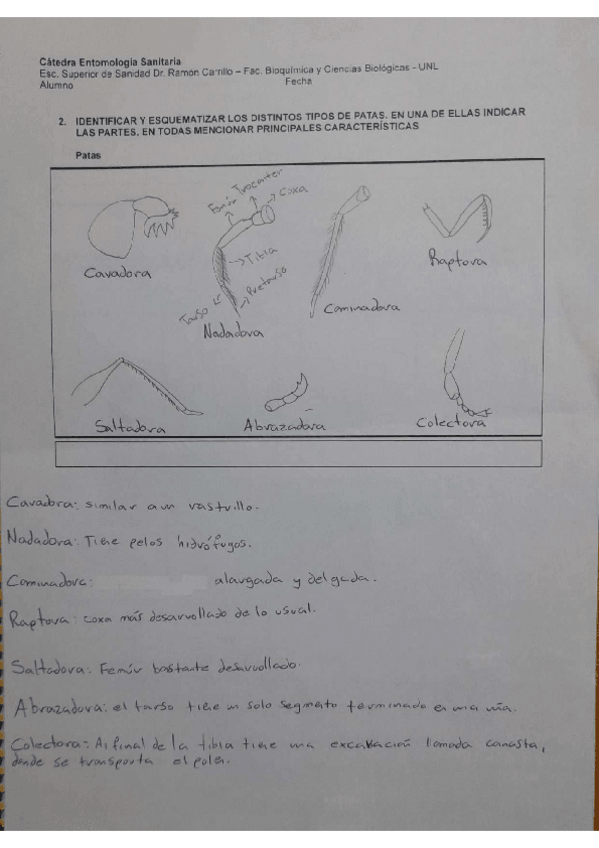 Cátedra Entomología Sanitaria
Esc. Superior de Sanidad Dr. Ramón Carrillo – Fac. Bioquímica y Ciencias Biológicas - UNL
Alumno Fecha
2. IDENTIFICAR Y ESQUEMATIZAR LOS DISTINTOS TIPOS DE PATAS. EN UNA DE ELLAS INDICAR
LAS PARTES. EN TODAS MENCIONAR PRINCIPALES CARACTERÍSTICAS
Patas
Femúr Trocanter
Coxa
Tibia
Pretarso
Tarso
Cavadora
Nadadora
Caminadora
Raptora
Saltadora
Abrazadora
Colectora
Cavadora: similar a un rastrillo.
Nadadora: Tiene pelos hidrófugos.
Caminadora: alargada y delgada.
Raptora: coxa más desarrollado de lo usual.
Saltadora: Femúr bastante desarrollado.
Abrazadora: el tarso tiene un solo segmento terminado en una uña.
Colectora: Al final de la tibia tiene una excavación llamada canasta,
donde se transporta el polen.